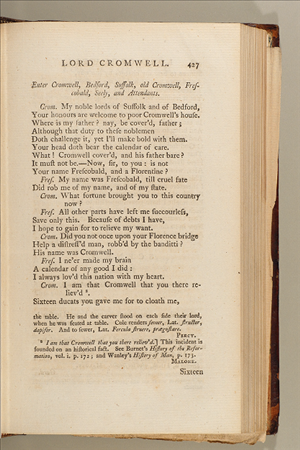 LORD CROMWELL. 427
Enter Cromwell, Bedford, Suffolk, old Cromwell, Fres-
cobald, Seely, and Attendants.
Crom. My noble lords of Suffolk and of Bedford,
Your honours are welcome to poor Cromwell's house.
Where is my father? nay, be cover'd, father;
Although that duty to these noblemen
Doth challenge it, yet I'll make bold with them.
Your head doth bear the calendar of care.
What! Cromwell cover'd, and his father bare?
It must not be.—Now, sir, to you: is not
Your name Frescobald, and a Florentine?
Fres. My name was Frescobald, till cruel fate
Did rob me of my name, and of my state.
Crom. What fortune brought you to this country
now?
Fres. All other parts have left me succourless,
Save only this. Because of debts I have,
I hope to gain for to relieve my want.
Crom. Did you not once upon your Florence bridge
Help a distress'd man, robb'd by the banditti?
His name was Cromwell.
Fres. I ne'er made my brain
A calendar of any good I did:
I always lov'd this nation with my heart.
Crom. I am that Cromwell that you there re-
liev'd *.
Sixteen ducats you gave me for to cloath me,
the table. He and the carver stood on each side their lord,
when he was seated at table. Cole renders sewer, Lat. structor,
dapifer. And to sewe, Lat. Fercula struere, prægustare.
PERCY.
* I am that Cromwell that you there reliev'd.] This incident is
founded on an historical fact. See Burnet's History of the Refor-
mation, vol. i. p. 172; and Wanley's History of Man, p. 173.
MALONE.
Sixteen